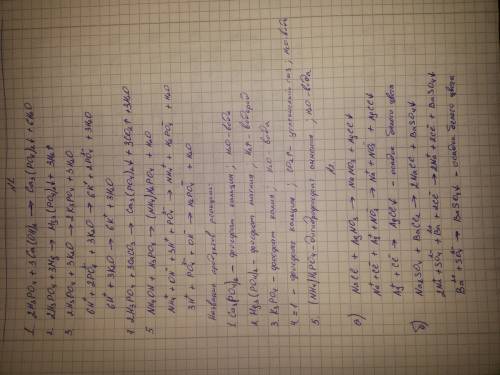 N1.
1. 2H₃PO₄ + 3Ca(OH)₂ → Ca₃(PO₄)₂↓ + 6H₂O
2. 2H₃PO₄ + 3Mg → Mg₃(PO₄)₂↓ + 3H₂↑
3. 2H₃PO₄ + 3K₂O → 2K₃PO₄ + 3H₂O
6H⁺ + 2PO₄³⁻ + 3K₂O → 6K⁺ + 2PO₄³⁻ + 3H₂O
6H⁺ + 3K₂O → 6K⁺ + 3H₂O
4. 2H₃PO₄ + 3CaCO₃ → Ca₃(PO₄)₂↓ + 3CO₂↑ + 3H₂O
5. NH₄OH + H₃PO₄ → (NH₄)H₂PO₄ + H₂O
Названия продуктов реакции:
1. Ca₃(PO₄)₂ - фосфат кальция, H₂O - вода
2. Mg₃(PO₄)₂ - фосфат магния, H₂↑ - водород
3. K₃PO₄ - фосфат калия, H₂O - вода
4. = 1 - фосфат кальция, CO₂↑ - углекислый газ, H₂O - вода
5. (NH₄)H₂PO₄ - дигидрофосфат аммония, H₂O - вода
N2.
а) NaCl + AgNO₃ → NaNO₃ + AgCl↓
Na⁺ + Cl⁻ + Ag⁺ + NO₃⁻ → Na⁺ + NO₃⁻ + AgCl↓
Ag⁺ + Cl⁻ → AgCl↓ - осадок белого цвета
б) Na₂SO₄ + BaCl₂ → 2NaCl + BaSO₄↓
2Na⁺ + SO₄²⁻ + Ba²⁺ + 2Cl⁻ → 2Na⁺ + 2Cl⁻ + BaSO₄↓
Ba²⁺ + SO₄²⁻ → BaSO₄↓ - осадок белого цвета